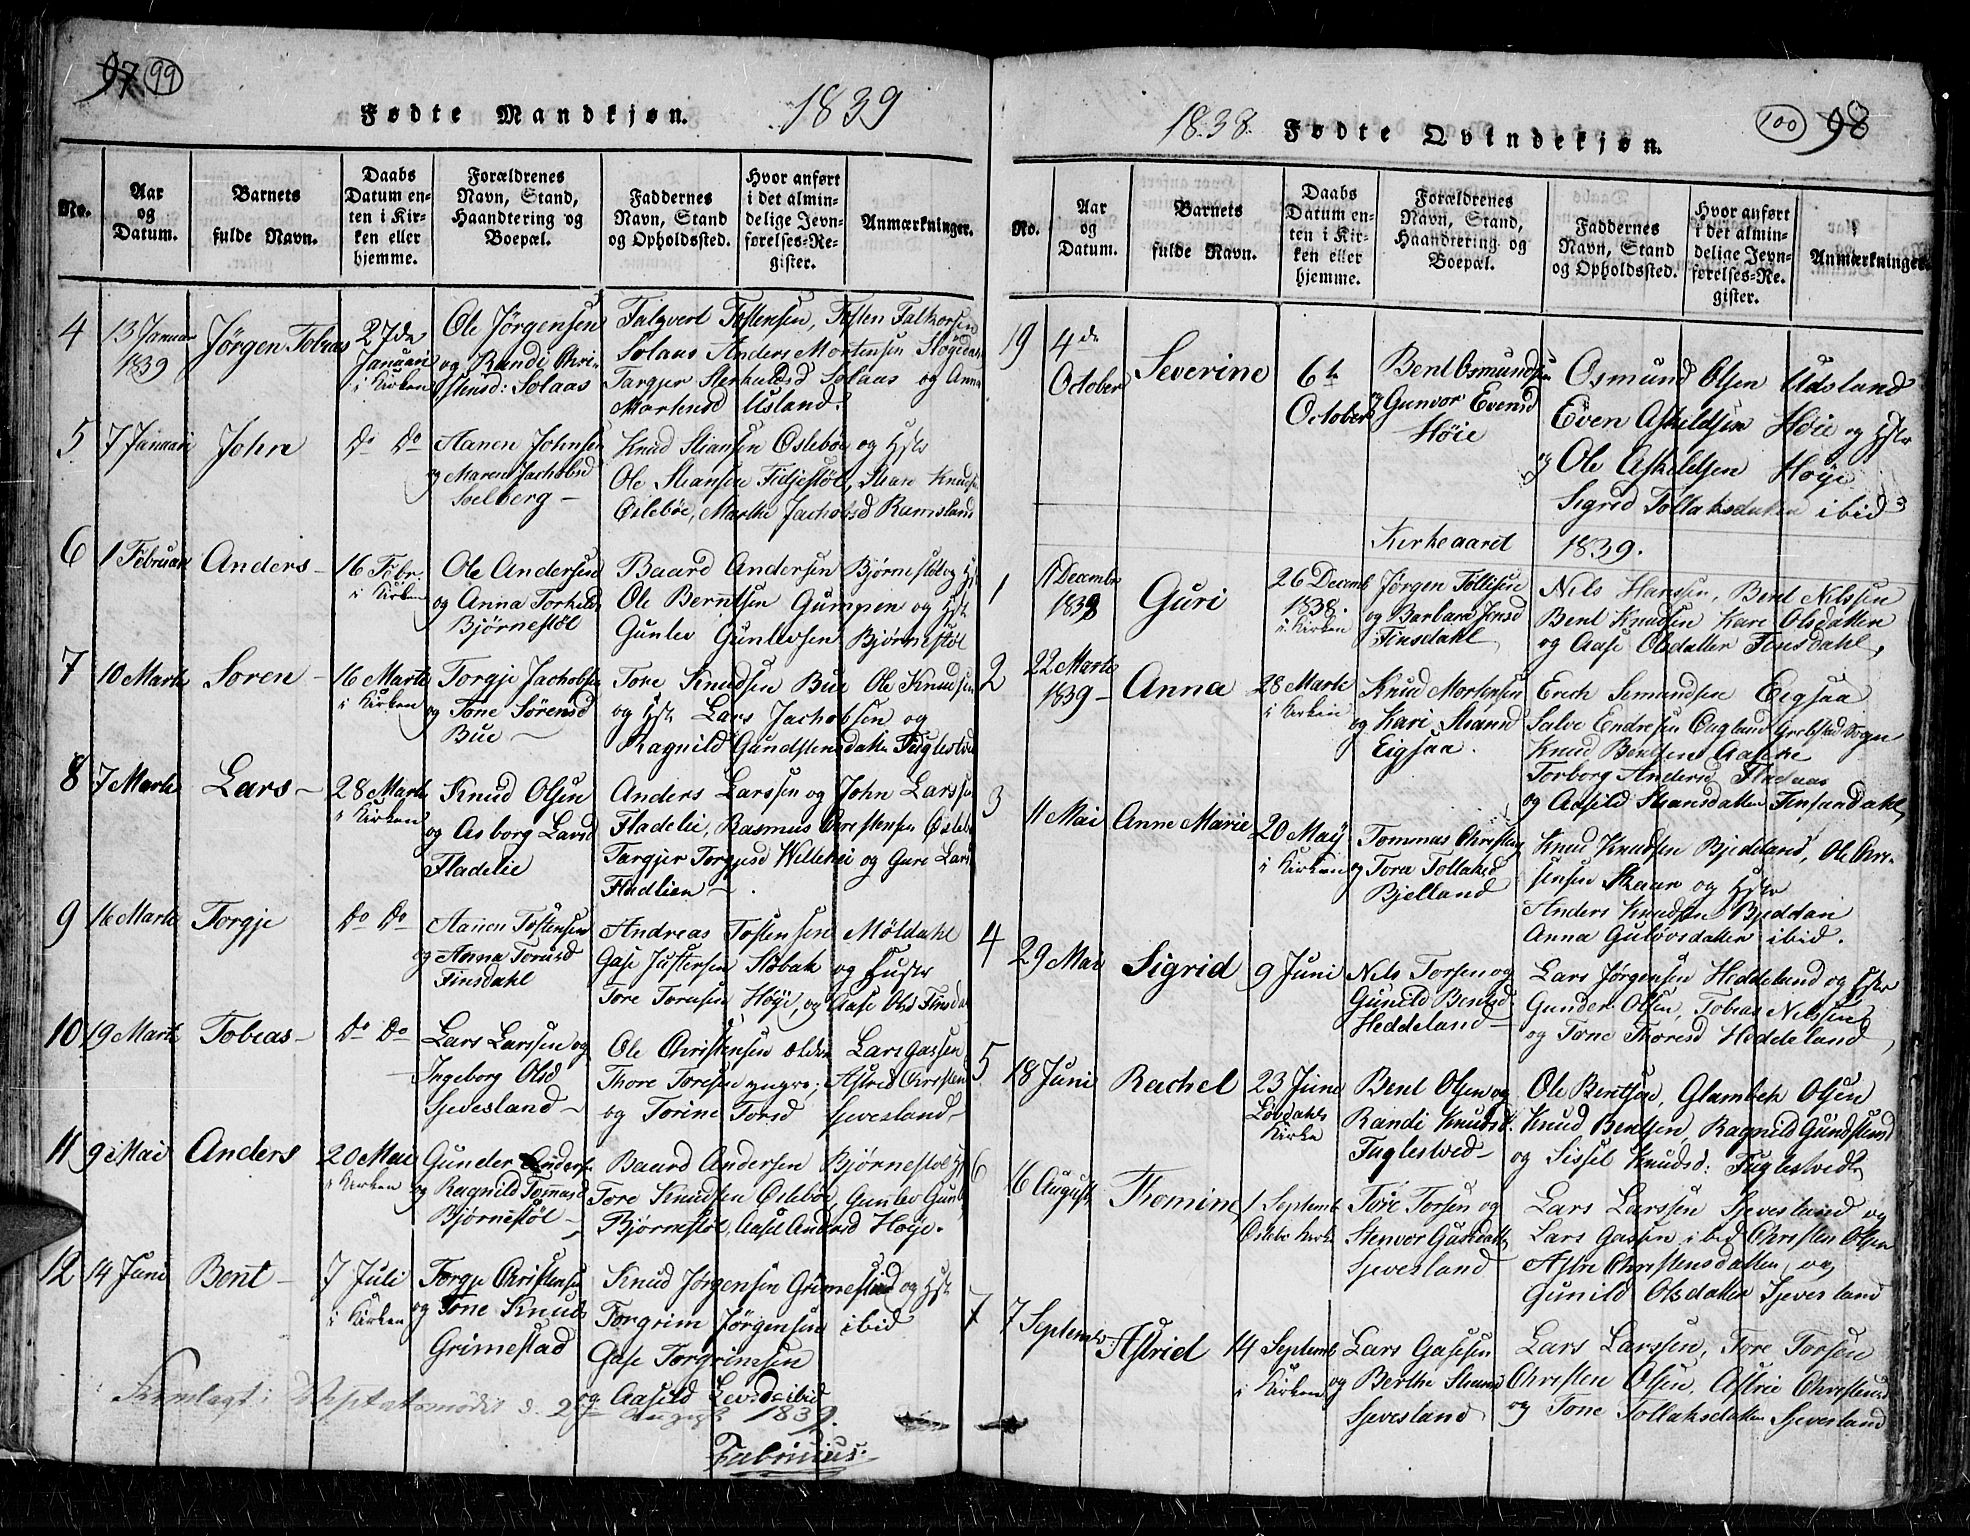 97 99
Fødte Mandkjøn. 1839
No.
Aar
og
Datum.
Barnets
fulde Navn.
Daabs
Datum en-
ten i Kir-
ken eller
hjemme.
Forældrenes
Navn, Stand,
Haandtering og
Boepæl.
Faddernes
Navn, Stand
og Opholdssted.
Hvor anført
i det almin-
delige Jevn-
førelses-Re-
gister.
Anmærkninger.
4
13 Januar
1839
Jörgen Tobias
27de
Januari
i Kirken
Ole Jörgensen
og Randi Chri-
stensd: Solaas
Tostensen, Tosten
Solaas Anders Mortensen
Solaas og Anna
Martensd Usland.
5
7 Januari
John
Do Do
Aanen Johnsen
og Maren Jachobsd
Soelberg –
Knud Stiansen Osleböe og Hstr
Ole Stiansen Fidjestöl, Stian Knudsen
Osleböe, Marthe Jachobsd Ramsland
6
1 Februari
Anders –
16 Febr.
i Kirken
Ole Andersen
og Anna Torkelsd
Björnestöl
Baard Andersen Björnestöl og Hst
Ole Berntsen Gumpen og Hstr
Gunlev Gunlevsen Björnestöl
7
10 Marti
Soren –
16 Marti
i Kirken
Torgje Jachobsen
og Tone Sörensd
Bue –
Tore Knudsen Bue Ole Knudsen
og Hstr Lars Jachobsen og
Ragnild Gundstensdatter Fuglestvedt
8
7 Marti
Lars –
28 Marti
i Kirken
Knud Olsen
og Asborg Larsd
Fladelie
Anders Larssen og John Larssen
Fladelie, Rasmus Christensen Oslebö
Targjer Torgjusd og Guro Lars
Fladlien –
9
16 Marti
Torgje
Do Do
Aanen Tostensen
og Anna Torusd
Finsdahl
Andreas Tostensen Möldahl
Gase og Hustr
Tore Toresen Höye, og Aase Olsd Finsdal
10
19 Marti
Tobias –
Do Do
Lars Larssen og
Ingeborg Olsd
Sjevesland –
Ole Christensen ældre Lars Gassen
Thore Toresen yngre; Astrid Christensd
og Torine Torsd Sjevesland –
11
9 Mai
Anders
20 Mai
i Kirken
Gunder Anders
og Ragnild Tomasd
Björnestöl –
Baard Andersen Björnestöl
Tore Knudsen Oslebö, Gunlev Gunl
Björnestöl, Aase Andersd Höye.
12
14 Juni
Bent –
7 Juli
i Kirken
Torgje Christensen
og Tone Knuds
Grimestad
Knud Jörgensen Grimestad og Hst
Torgrim Jörgensen ibid
Gase Torgrimsen
og Aasild ibid
Fremlagt i d. 27 August 1839.
Fabricius.
1838. Fødte Qvindekjøn. 100 98
No.
Aar
og
Datum.
Barnets
fulde Navn.
Daabs
Datum en-
ten i Kir-
ken eller
hjemme.
Forældrenes
Navn, Stand,
Haandtering og
Boepæl.
Faddernes
Navn, Stand
og Opholdssted.
Hvor anført
i det almin-
delige Jevn-
førelses-Re-
gister.
Anmærkninger.
19
4de
October
Severine
6te
October
Bent Osmundsen
og Gunvor Evensd
Höie
Osmund Olsen Udsland
Even Askildsen Höie og Hstr
og Ole Askildsen Höye
Sigrid Tollaksdatter ibid
Kirkeaaret 1839.
1
11 Decembr
1838
Guri
26 Decemb
1838.
i Kirken
Jörgen Tollisen
og Barbara Jensd
Finsdahl
Nils Hanssen, Bent Nilssen
Bent Knudsen Kari Olsdatter
og Aase Olsdatter Finsdahl,
2
22 Marti
1839 –
Anna
28 Marti
i Kirken
Knud Mortensen
og Kari Stiansd
Eigsaa.
Erich Semundsen Eigsaa
Salve Endresen Grebstad Sogn
Knud Bentsen
Torborg Andersd Fladaas
og Aasild Stiansdatter Finsandahl
3
11 Mai
Anne Marie
20 Maÿ
i Kirken
Tommas Christens
og Tora Tollaksd
Bjelland
Knud Knudsen Bjelland, Ole Chri-
stensen Skaar og Hstr
Anders Knudsen
Anna Gulövsdatter ibid.
4
29 Mai
Sigrid
9 Juni
Nils Torsen og
Gunild Bentsd.
Heddeland –
Lars Jörgensen Heddeland og Hstr
Gunder Olsen, Tobias Nilssen
og Tone Thoresd Heddeland,
5
18 Juni
Rachel
23 Juni
Lövdahls
Kirke
Bent Olsen og
Randi Knudsd.
Fuglestved –
Ole Bentsen, Glambek Olsen
Knud Bentsen, Ragnild Gundstensd
og Sissel Knudsd: Fuglestvedt
6
16 August
Thomine
1 Septemb
Oslebö Kirke
Tore Torsen og
Stenvor Gasedatt
Sjevesland
Lars Larssen Sjevesland og
Lars Gassen ibid Christen Olsen
Astri Christensdatter og
Gunild Olsdatter Sjevesland
7
7 Septembr
Astrid
14 Septemb
i Kirken
Lars Gasesen
og Berthe Stiansd
Sjevesland
Lars Larssen, Tore Torsen
Christen Olsen, Astrie Christensd
og Tone Tollaksdatter Sjevesland